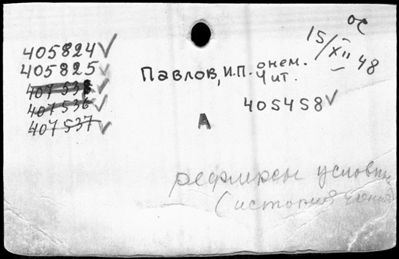 ос
15/XII 48
405824 ✓
405825 ✓
407535 ✓
407536 ✓
407537 ✓
Павлов, И.П. о нем.
Чит.
405458 ✓
А
рефлексы условн
(история